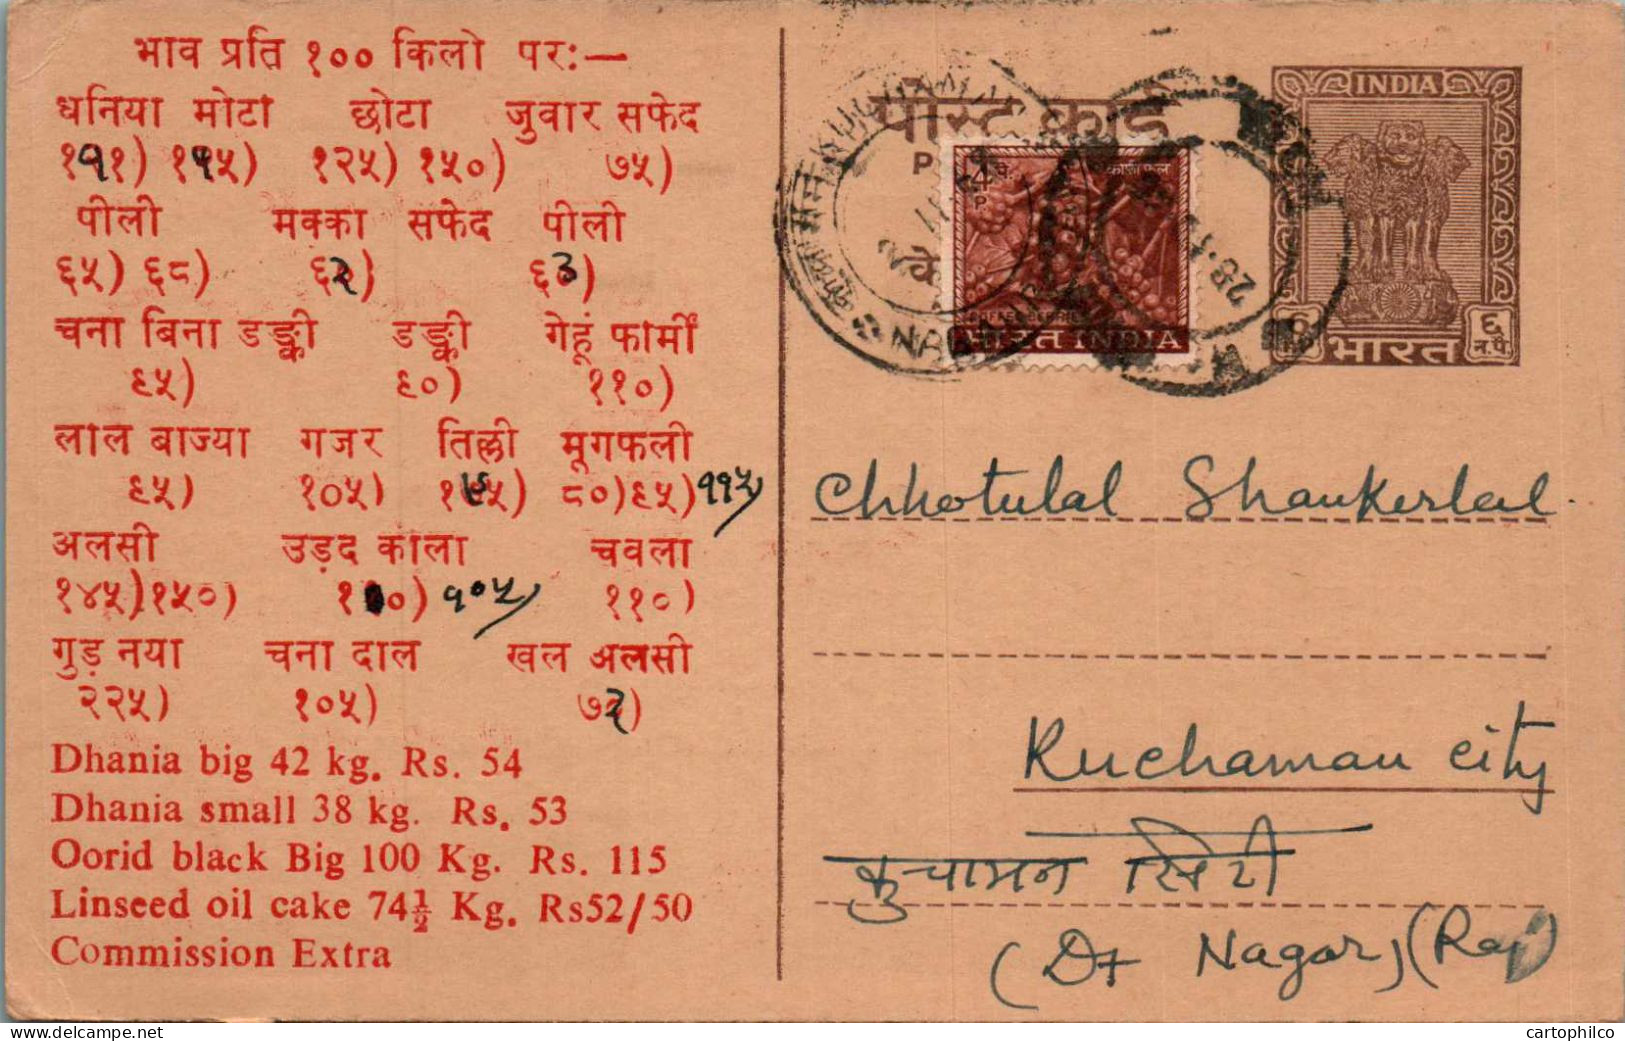 भाव प्रति १०० किलो पर:—
धनिया मोटा छोटा जुवार सफेद
१११) १५५) १२५) १५०) ७५)
पीली मक्का सफेद पीली
६५) ६८) ६२) ६३)
चना बिना डङ्की डङ्की गेहूं फार्मी
९५) ९०) ११०)
लाल बाज्या गजर तिल्ली मूगफली
९५) १०५) ८०) ९५) ११५)
अलसी उड़द काला चवला
१४५) १५०) १०५) ११०)
गुड़ नया चना दाल खल अलसी
२२५) १०५) ७२)
Dhania big 42 kg. Rs. 54
Dhania small 38 kg. Rs. 53
Oorid black Big 100 Kg. Rs. 115
Linseed oil cake 74½ Kg. Rs52/50
Commission Extra
पोस्ट कार्ड
INDIA
६ न.पै.
भारत
4 P
भारत INDIA
Chhotulal Shankerlal
Kuchaman city
कुचामन सिटी
(Dt Nagar) (Raj)
cartophilco